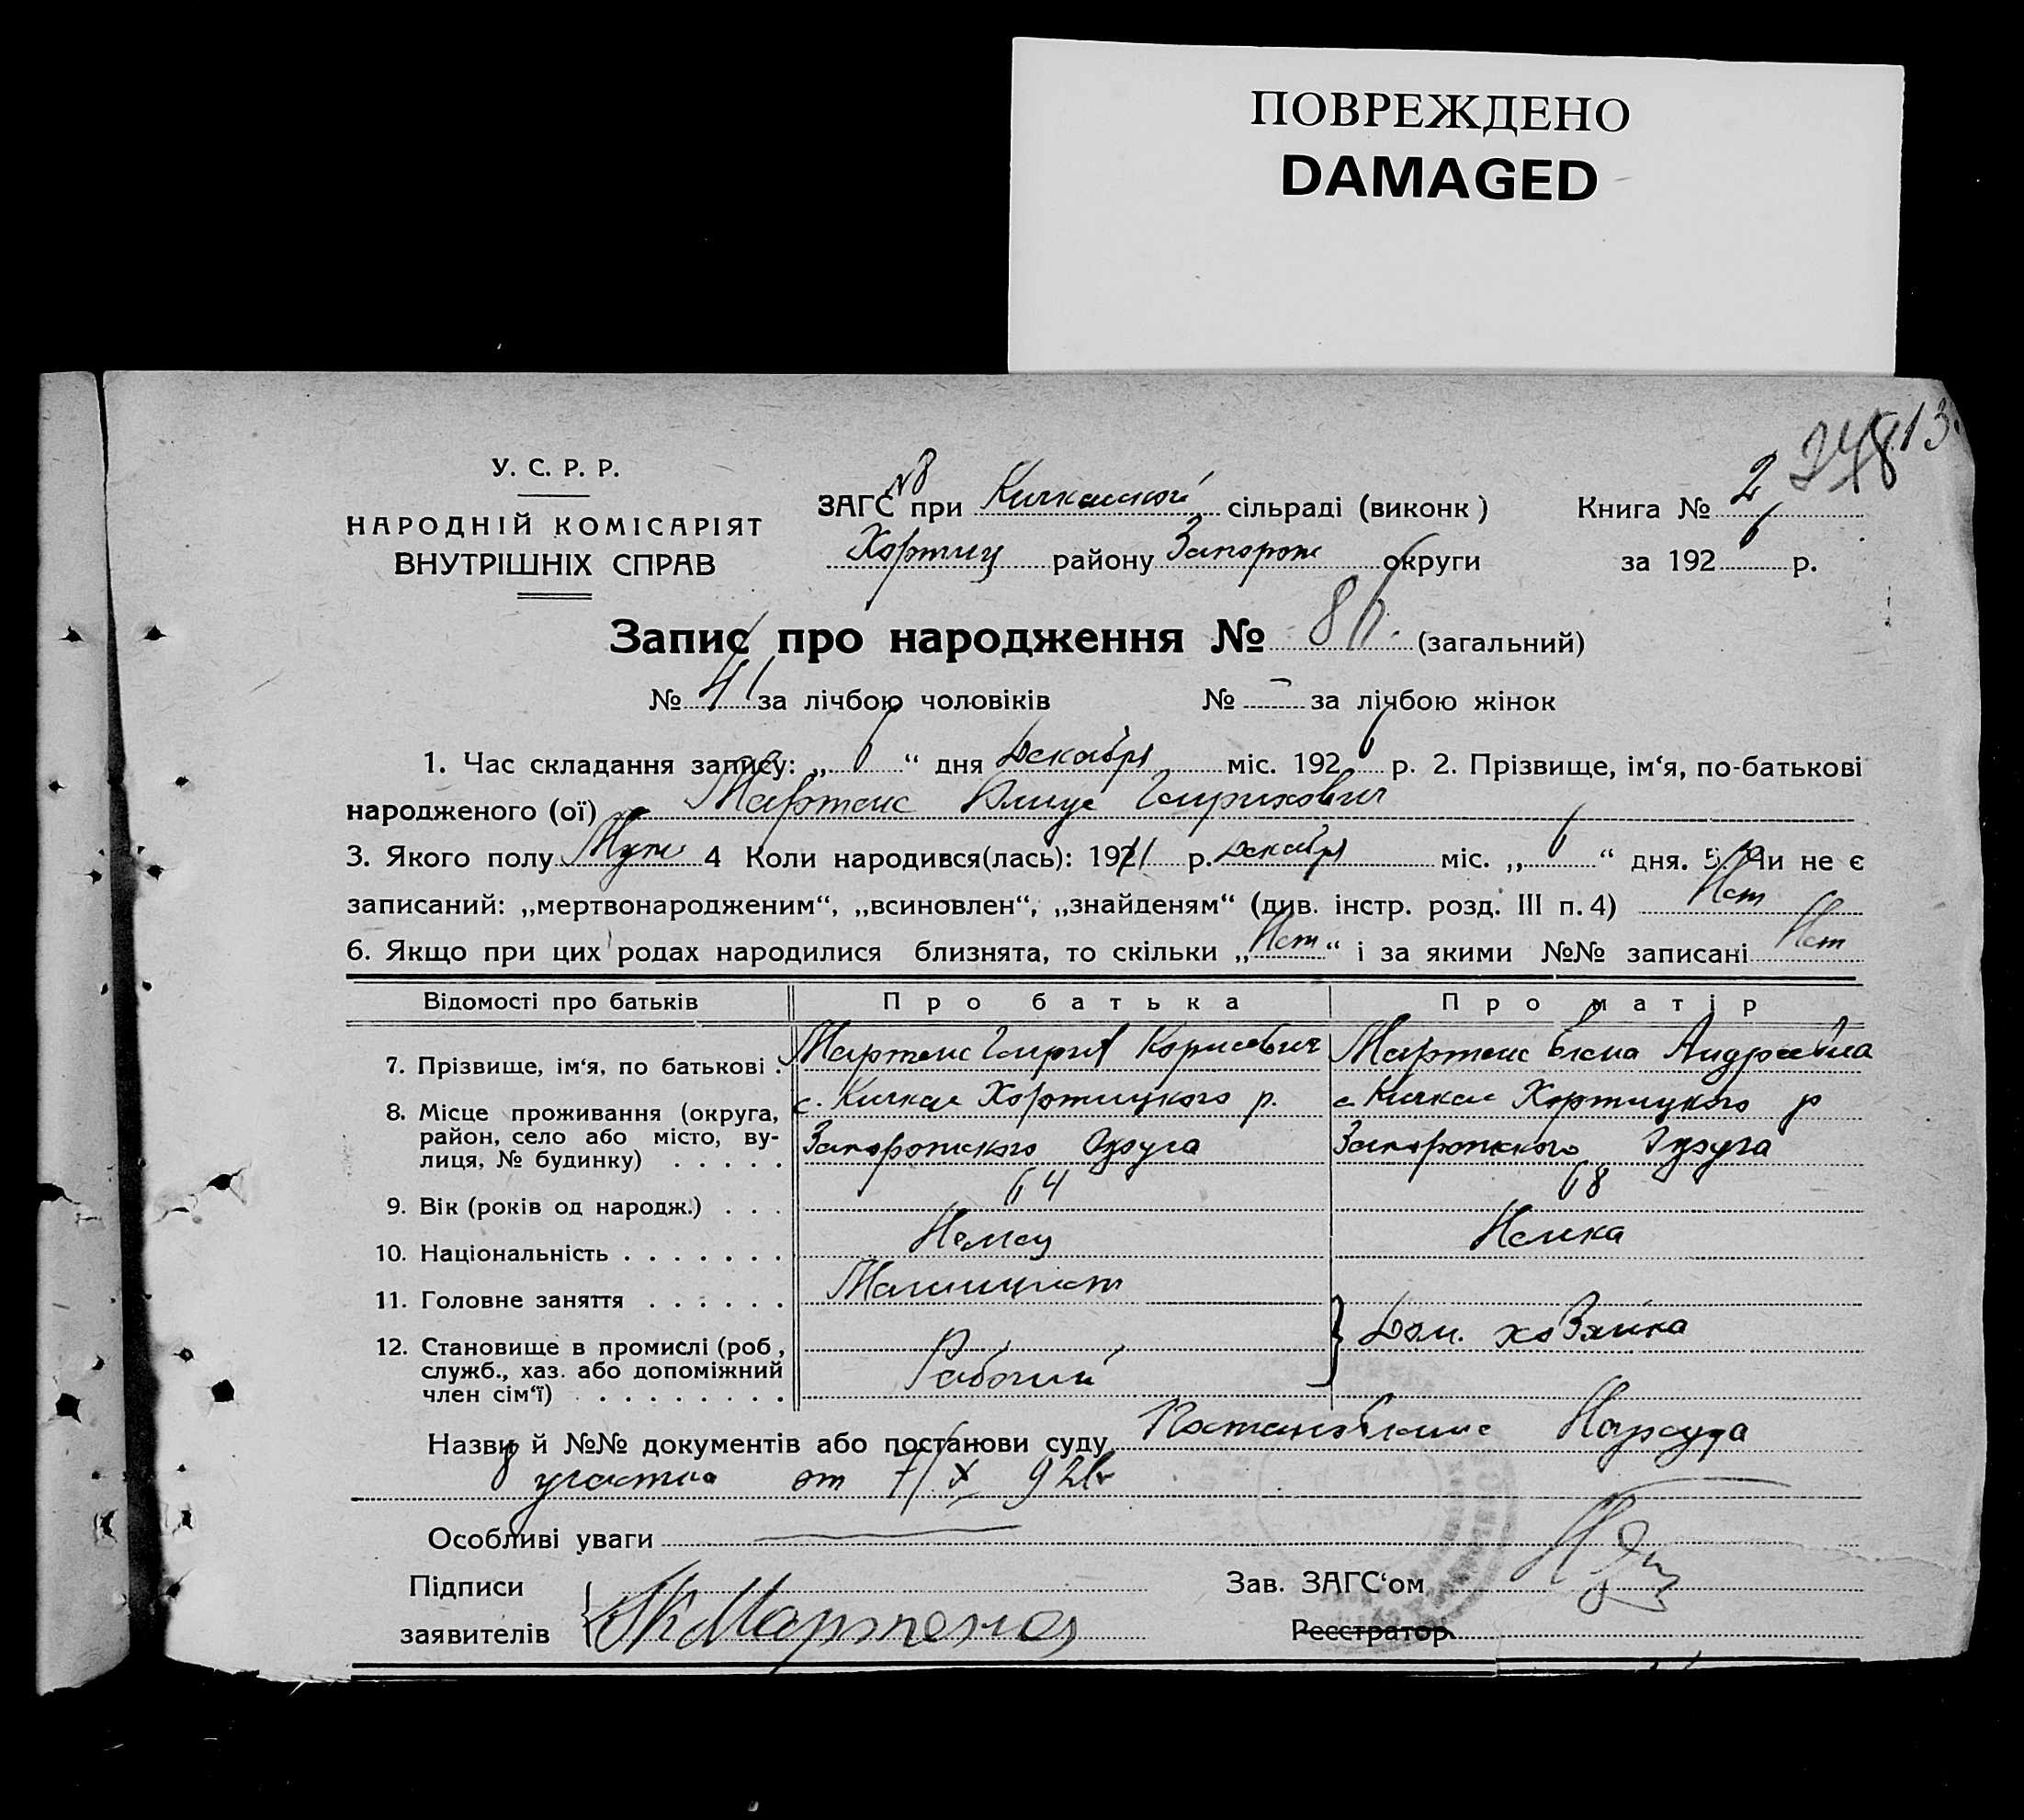 ПОВРЕЖДЕНО
DAMAGED
348 13
У. С. Р. Р.
НАРОДНІЙ КОМІСАРІЯТ
ВНУТРІШНІХ СПРАВ
№8
ЗАГС при Кичкасской сільраді (виконк)
Хортиц району Запорож округи
Книга № 2
за 1926 р.
Запис про народження № 86. (загальний)
№ 41 за лічбою чоловіків № – за лічбою жінок
1. Час складання запису: „6“ дня Декабря міс. 1926 р. 2. Прізвище, ім‘я, по-батькові
народженого (ої) Мартенс Гейрихович
3. Якого полу Муж 4 Коли народився(лась): 19 р. Декабря міс. „6“ дня. 5. Чи не є
записаний: „мертвонародженим“, „всиновлен“, „знайденям“ (див. інстр. розд. III п. 4) Нет
6. Якщо при цих родах народилися близнята, то скільки „Нет“ і за якими №№ записані Нет
Відомості про батьків Про батька Про матір
7. Прізвище, ім‘я, по батькові . Мартенс Корнеевич Мартенс Елена Андреевна
8. Місце проживання (округа, с. Кичкас Хортицкого р. с Кичкас Хортицкого р
район, село або місто, ву- Запорожского Округа Запорожского Округа
лиця, № будинку) . . . . .
9. Вік (років од народж.) . . . 64 68
10. Національність . . . . . . . Немец Немка
11. Головне заняття . . . . . . Машинист
12. Становище в промислі (роб, Дом. хозяйка
служб., хаз. або допоміжний Рабочий
член сім‘ї) . . . . . . . .
Назви й №№ документів або постанови суду Постановление Нарсуда
8 участка от 7/X 926г
Особливі уваги
Підписи
заявителів Мартенс
Зав. ЗАГС‘ом
Реєстратор